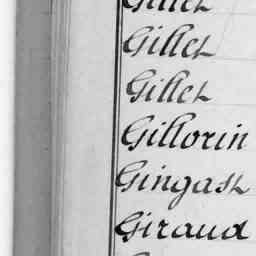 Gillet
Gillet
Gillet
Gillorin
Gingast
Giraud